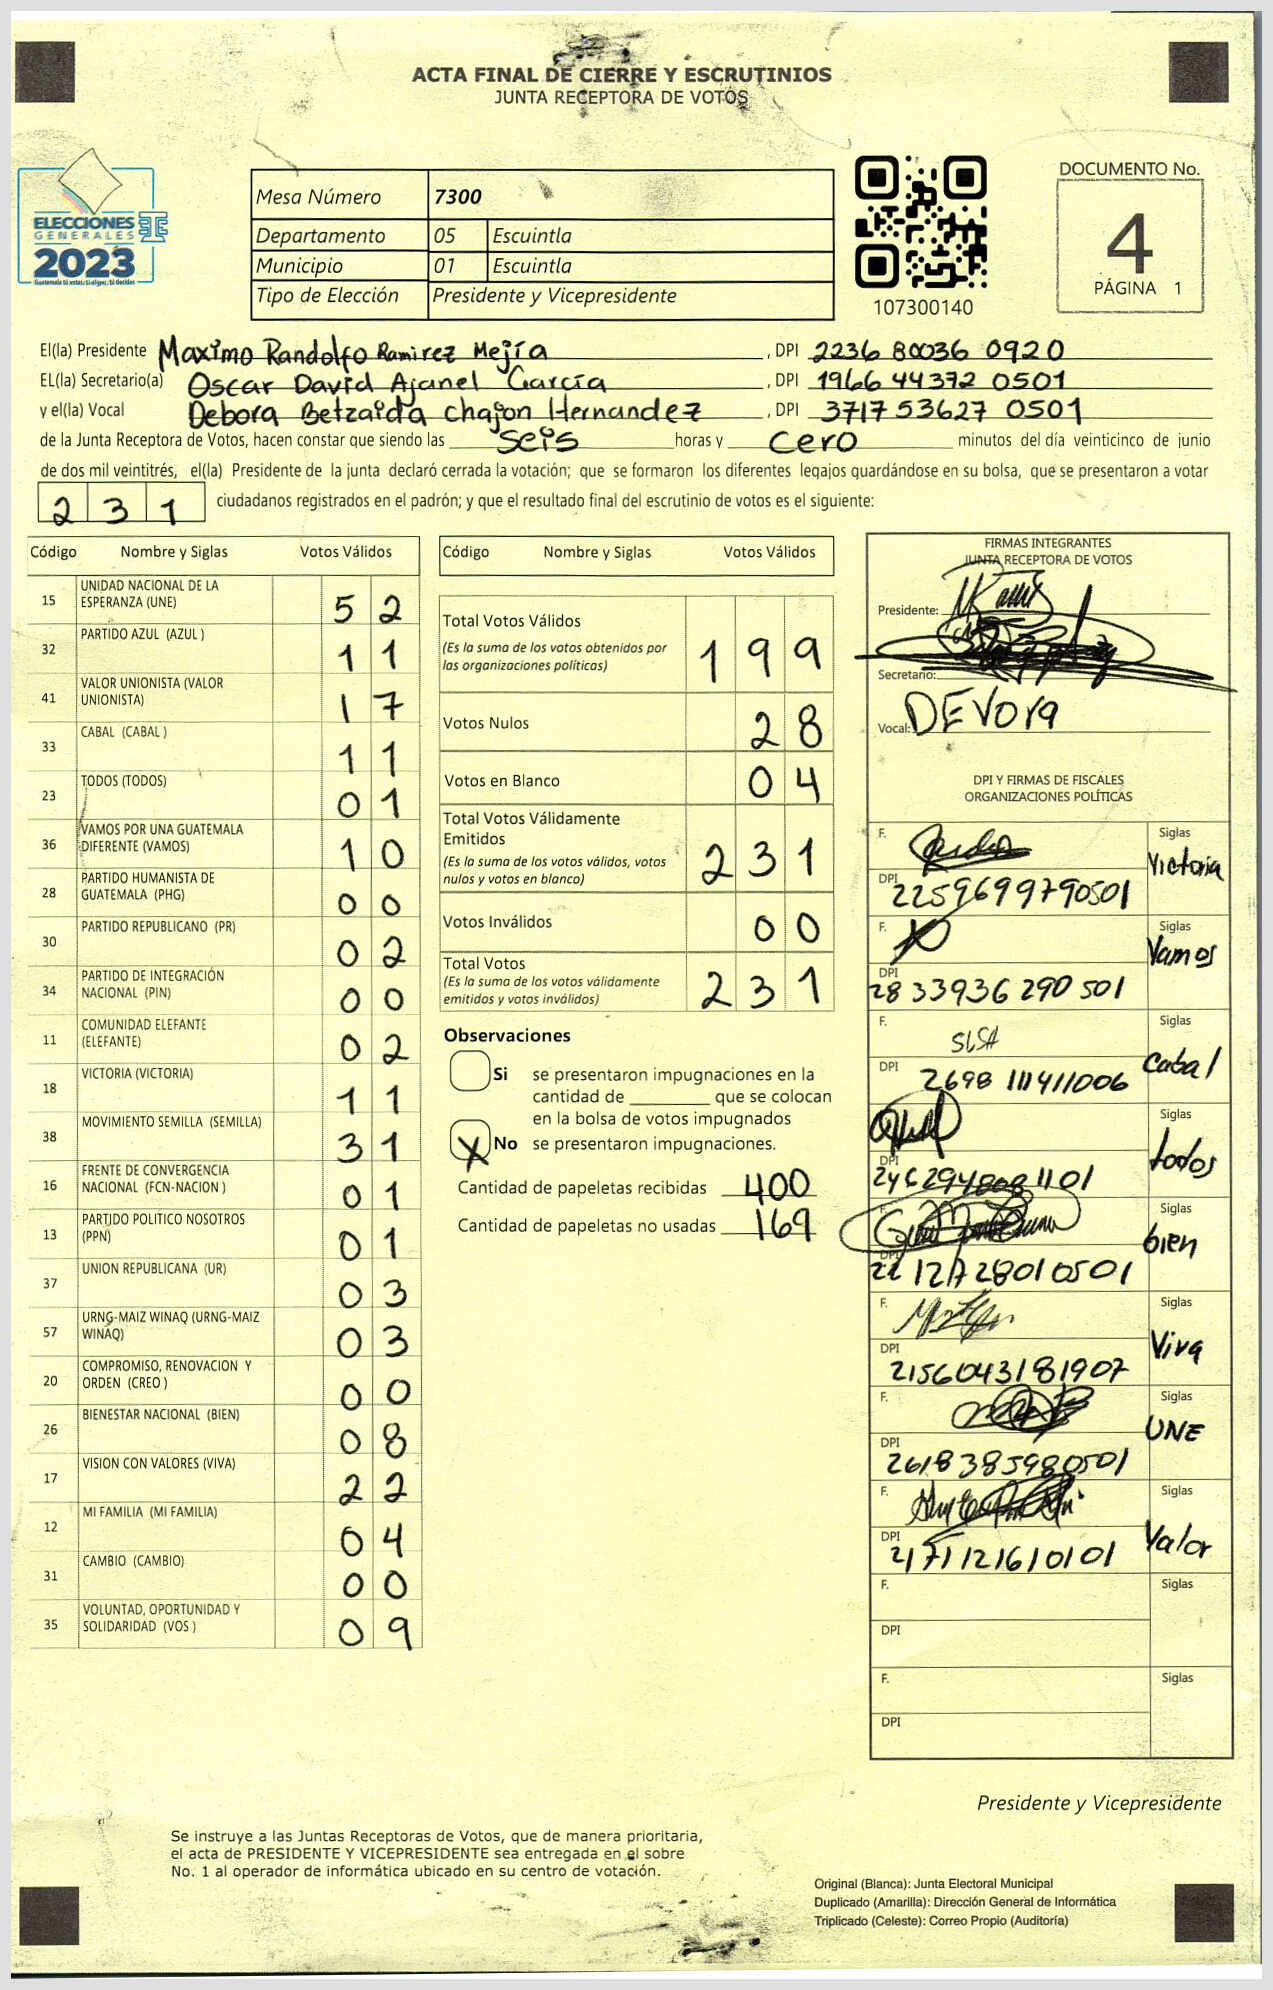 ACTA FINAL DE CIERRE Y ESCRUTINIOS
JUNTA RECEPTORA DE VOTOS
ELECCIONES
GENERALES
2023
Guatemala tú votas, tú eliges, tú decides
Mesa Número 7300
Departamento 05 Escuintla
Municipio 01 Escuintla
Tipo de Elección Presidente y Vicepresidente
107300140
DOCUMENTO No.
4
PÁGINA 1
El(la) Presidente Maximo Randolfo Ramirez Mejía , DPI 2236 80036 0920
EL(la) Secretario(a) Oscar David Ajanel García , DPI 1966 44372 0501
y el(la) Vocal Debora Betzaida Chajon Hernandez , DPI 3717 53627 0501
de la Junta Receptora de Votos, hacen constar que siendo las seis horas y cero minutos del día veinticinco de junio
de dos mil veintitrés, el(la) Presidente de la junta declaró cerrada la votación; que se formaron los diferentes legajos guardándose en su bolsa, que se presentaron a votar
231 ciudadanos registrados en el padrón; y que el resultado final del escrutinio de votos es el siguiente:
Código Nombre y Siglas Votos Válidos
15 UNIDAD NACIONAL DE LA ESPERANZA (UNE) 52
32 PARTIDO AZUL (AZUL ) 11
41 VALOR UNIONISTA (VALOR UNIONISTA) 17
33 CABAL (CABAL ) 11
23 TODOS (TODOS) 01
36 VAMOS POR UNA GUATEMALA DIFERENTE (VAMOS) 10
28 PARTIDO HUMANISTA DE GUATEMALA (PHG) 00
30 PARTIDO REPUBLICANO (PR) 02
34 PARTIDO DE INTEGRACIÓN NACIONAL (PIN) 00
11 COMUNIDAD ELEFANTE (ELEFANTE) 02
18 VICTORIA (VICTORIA) 11
38 MOVIMIENTO SEMILLA (SEMILLA) 31
16 FRENTE DE CONVERGENCIA NACIONAL (FCN-NACION ) 01
13 PARTIDO POLITICO NOSOTROS (PPN) 01
37 UNION REPUBLICANA (UR) 03
57 URNG-MAIZ WINAQ (URNG-MAIZ WINAQ) 03
20 COMPROMISO, RENOVACION Y ORDEN (CREO ) 00
26 BIENESTAR NACIONAL (BIEN) 08
17 VISION CON VALORES (VIVA) 22
12 MI FAMILIA (MI FAMILIA) 04
31 CAMBIO (CAMBIO) 00
35 VOLUNTAD, OPORTUNIDAD Y SOLIDARIDAD (VOS ) 09
Código Nombre y Siglas Votos Válidos
Total Votos Válidos 199
(Es la suma de los votos obtenidos por
las organizaciones políticas)
Votos Nulos 28
Votos en Blanco 04
Total Votos Válidamente
Emitidos 231
(Es la suma de los votos válidos, votos
nulos y votos en blanco)
Votos Inválidos 00
Total Votos 231
(Es la suma de los votos válidamente
emitidos y votos inválidos)
Observaciones
Si se presentaron impugnaciones en la
cantidad de ________ que se colocan
en la bolsa de votos impugnados
X No se presentaron impugnaciones.
Cantidad de papeletas recibidas 400
Cantidad de papeletas no usadas 169
FIRMAS INTEGRANTES
JUNTA RECEPTORA DE VOTOS
Presidente:
Secretario:
Vocal: DEVORA
DPI Y FIRMAS DE FISCALES
ORGANIZACIONES POLÍTICAS
F. Siglas Victoria
DPI 2259699790501
F. Siglas Vamos
DPI 2833936290501
F. Siglas Cabal
DPI 2698 111411006
Siglas todos
DPI
F. Siglas bien
DPI
F. Siglas Viva
DPI 2156043181907
F. Siglas UNE
DPI 2618385980501
F. Siglas Valor
DPI 2171121610101
F. Siglas
DPI
F. Siglas
DPI
Presidente y Vicepresidente
Se instruye a las Juntas Receptoras de Votos, que de manera prioritaria,
el acta de PRESIDENTE Y VICEPRESIDENTE sea entregada en el sobre
No. 1 al operador de informática ubicado en su centro de votación.
Original (Blanca): Junta Electoral Municipal
Duplicado (Amarilla): Dirección General de Informática
Triplicado (Celeste): Correo Propio (Auditoría)